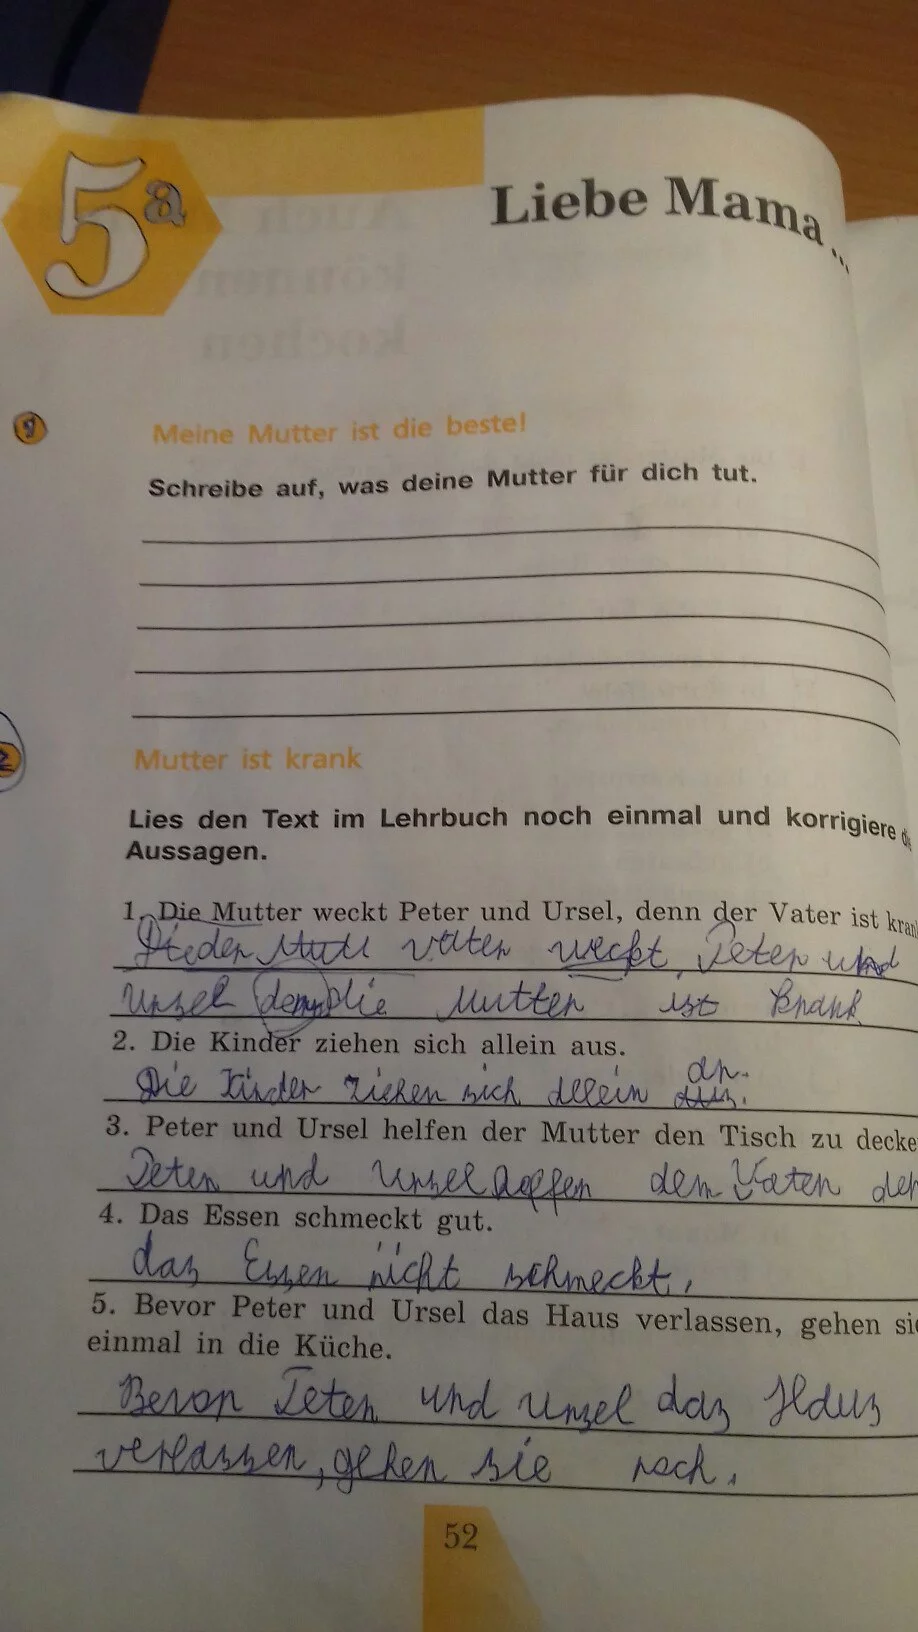 5a
Liebe Mama...
Meine Mutter ist die beste!
Schreibe auf, was deine Mutter für dich tut.
Mutter ist krank
Lies den Text im Lehrbuch noch einmal und korrigiere
Aussagen.
1. Die Mutter weckt Peter und Ursel, denn der Vater ist kran
der Vater weckt Peter und
Ursel denn die Mutter ist krank
2. Die Kinder ziehen sich allein aus.
an.
Die Kinder ziehen sich allein aus.
3. Peter und Ursel helfen der Mutter den Tisch zu decke
Peter und Ursel helfen dem Vater den
4. Das Essen schmeckt gut.
das Essen nicht schmeckt.
5. Bevor Peter und Ursel das Haus verlassen, gehen sie
einmal in die Küche.
Bevor Peter und Ursel das Haus
verlassen, gehen sie noch.
52